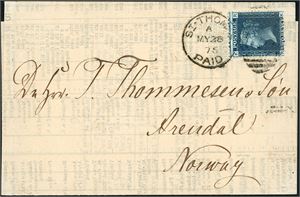 ST. THOMAS
A
MY 28
75
PAID
De hrr. T. Thommesen & Søn
Arendal
Norway